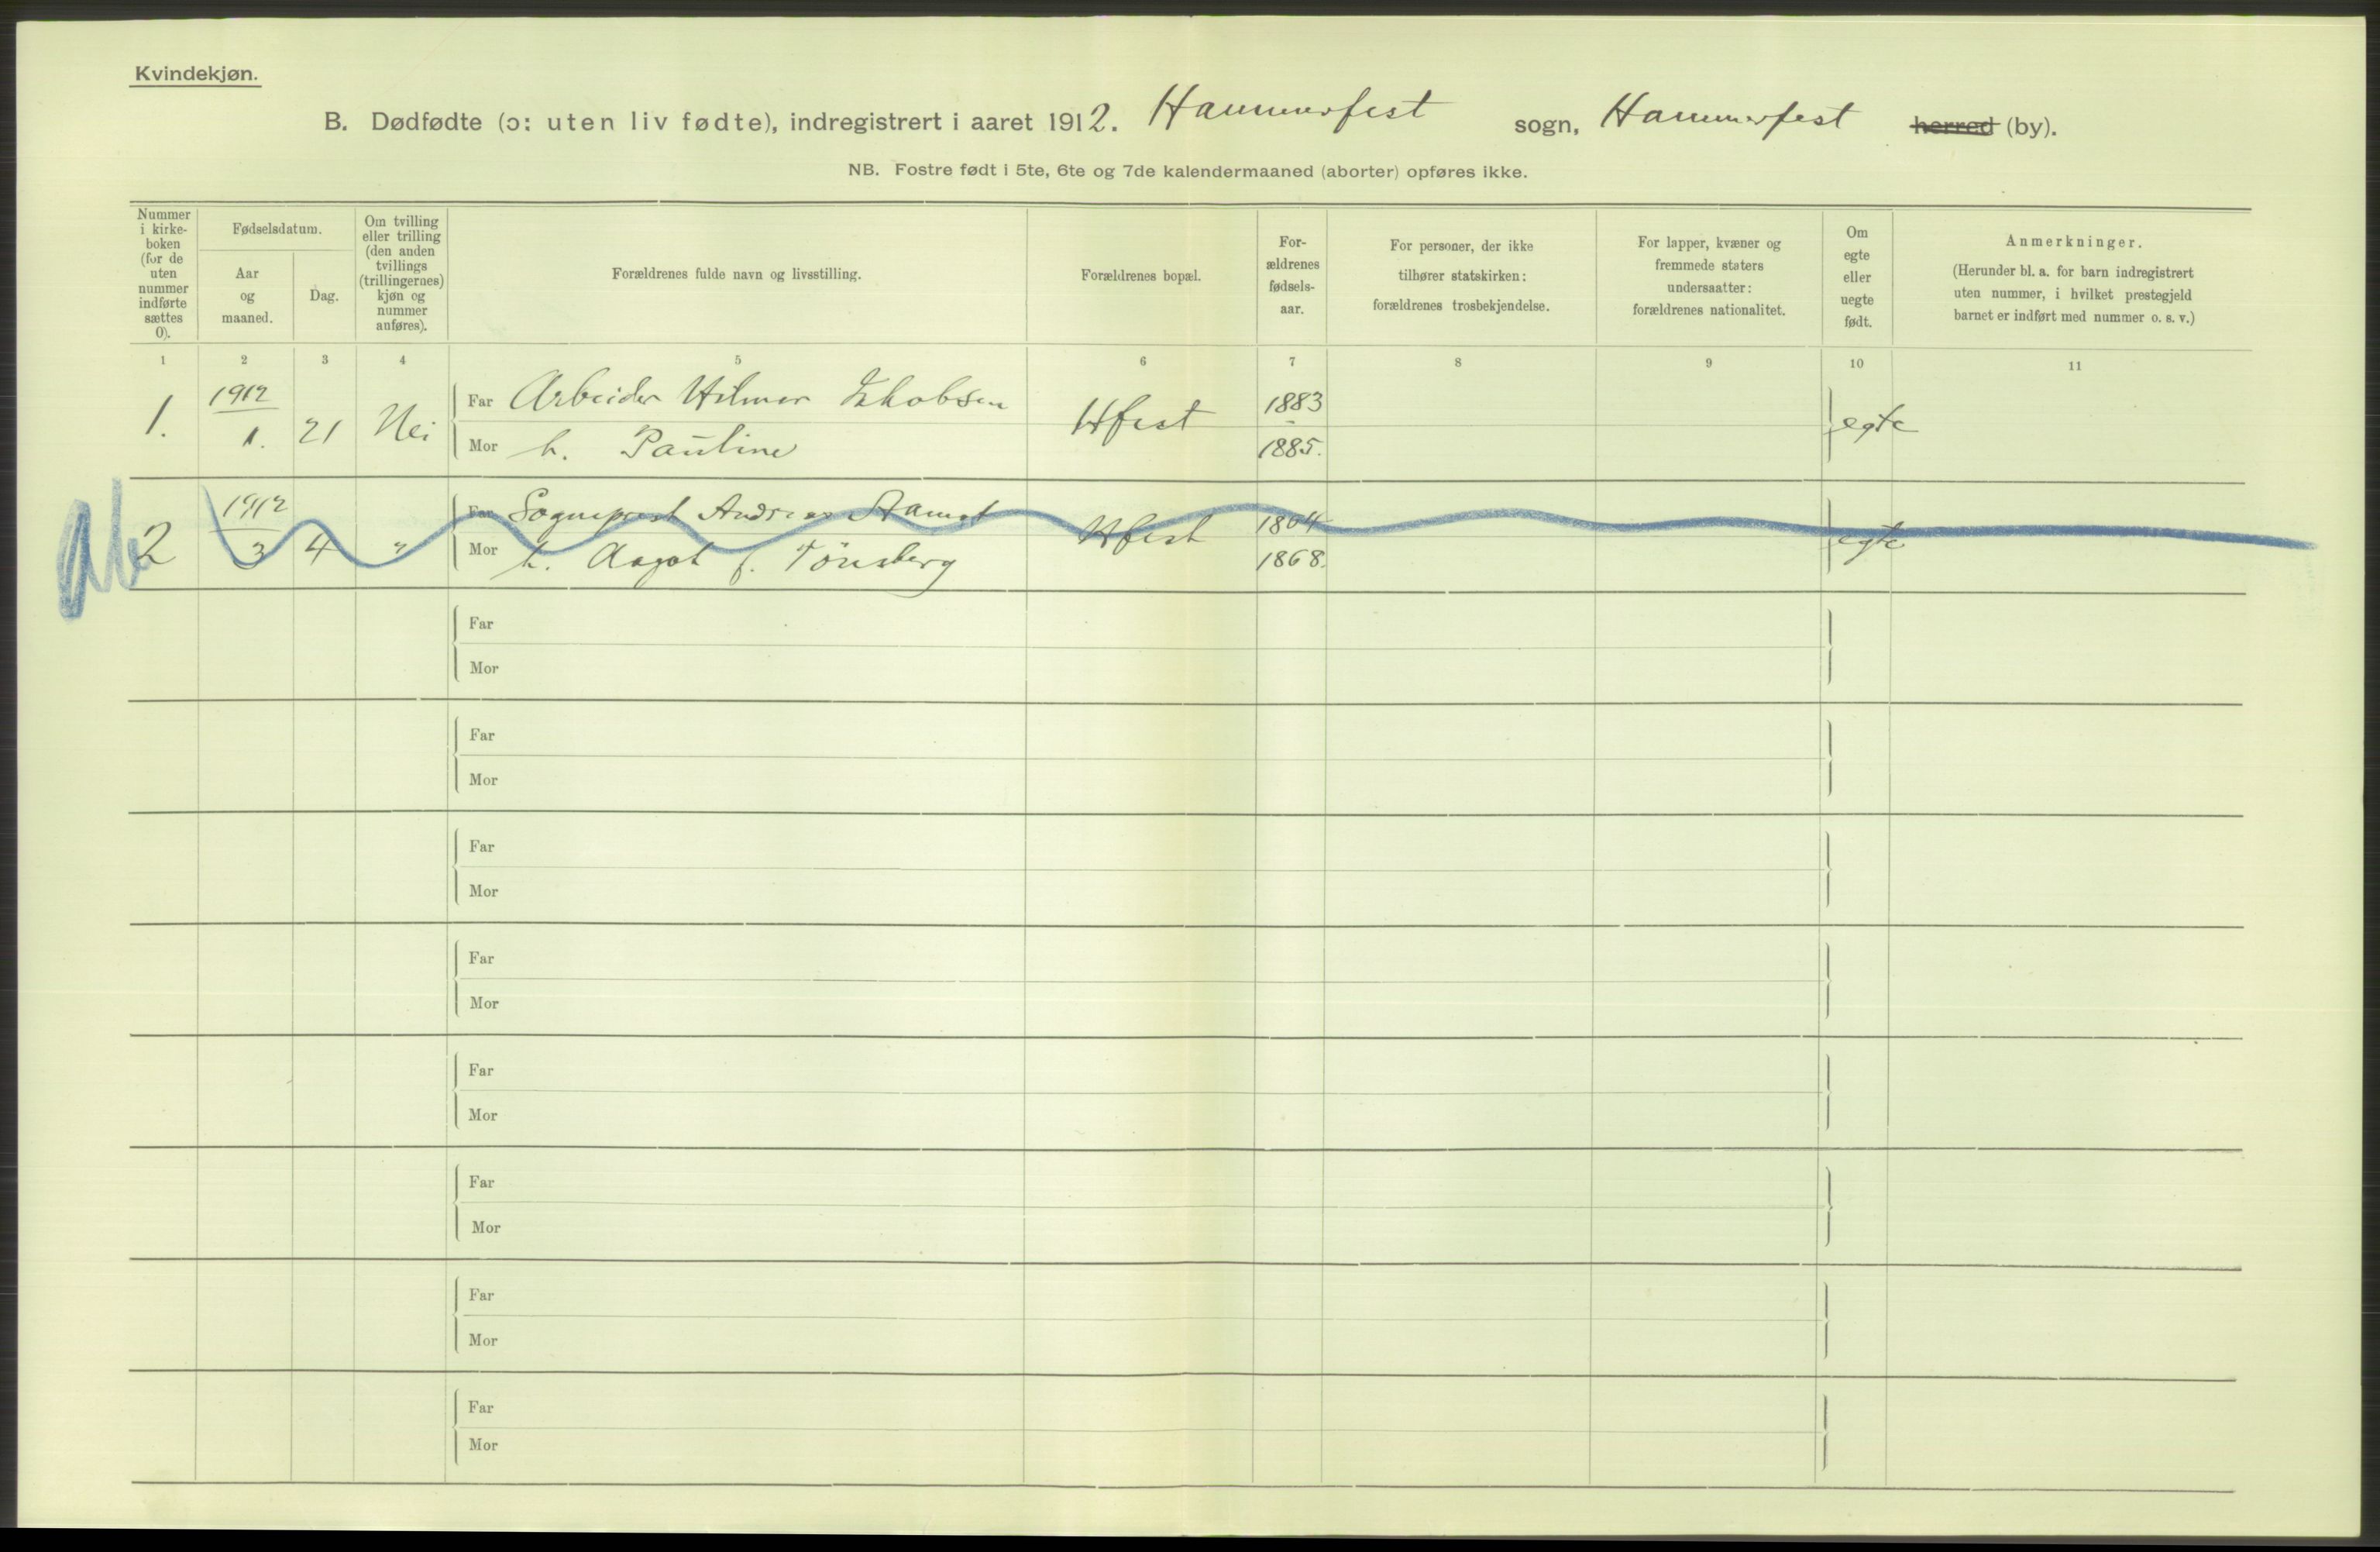 Kvindekjøn.
B. Dødfødte (ɔ: uten liv fødte), indregistrert i aaret 1912. Hammerfest sogn, Hammerfest herred (by).
NB. Fostre født i 5te, 6te og 7de kalendermaaned (aborter) opføres ikke.
Nummer
i kirke-
boken
(for de
uten
nummer
indførte
sættes
0).
Fødselsdatum.
Aar
og
maaned.
Dag.
Om tvilling
eller trilling
(den anden
tvillings
(trillingernes)
kjøn og
nummer
anføres).
Forældrenes fulde navn og livsstilling.
Forældrenes bopæl.
For-
ældrenes
fødsels-
aar.
For personer, der ikke
tilhører statskirken:
forældrenes trosbekjendelse.
For lapper, kvæner og
fremmede staters
undersaatter:
forældrenes nationalitet.
Om
egte
eller
uegte
født.
Anmerkninger.
(Herunder bl. a. for barn indregistrert
uten nummer, i hvilket prestegjeld
barnet er indført med nummer o. s. v.)
1 2 3 4 5 6 7 8 9 10 11
1. 1912 1. 21 Nei
Far Arbeider Hilmar Jakobsen
Mor h. Pauline
Hfest 1883 1885. egte
Ab
2 1912 3 4 "
Far Sogneprest Andreas
Mor h. Aagot f. Tønsberg
Hfest 1864 1868. egte
Far
Mor
Far
Mor
Far
Mor
Far
Mor
Far
Mor
Far
Mor
Far
Mor
Far
Mor